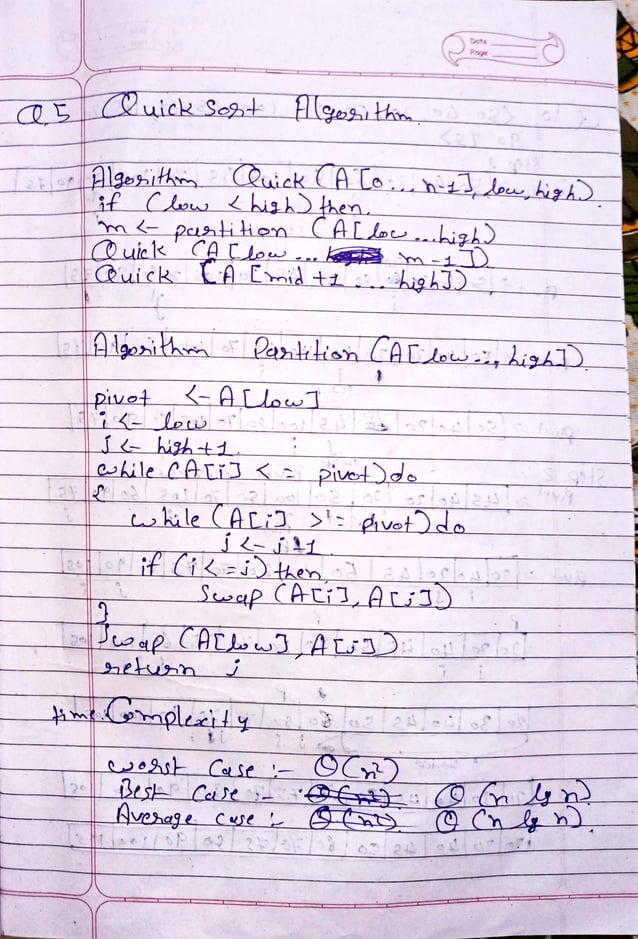 Date
Page
Q.5 Quick Sort Algorithm.
Algorithm Quick (A[0...n-1], low, high)
if (low < high) then.
m <- partition (A[low...high)
Quick (A[low... m-1])
Quick [A [mid+1 ... high])
Algorithm Partition (A[low.., high]).
pivot <- A[low]
i <- low
j <- high+1.
while (A[i] <= pivot) do
{
while (A[j] >= pivot) do
j <- j-1
if (i <= j) then,
Swap (A[i], A[j])
}
Swap (A[low], A[j])
return j
time Complexity
worst Case :- Θ(n²)
Best Case :- Θ(n²) Θ(n lg n)
Average case :- Θ(n²). Θ(n lg n).